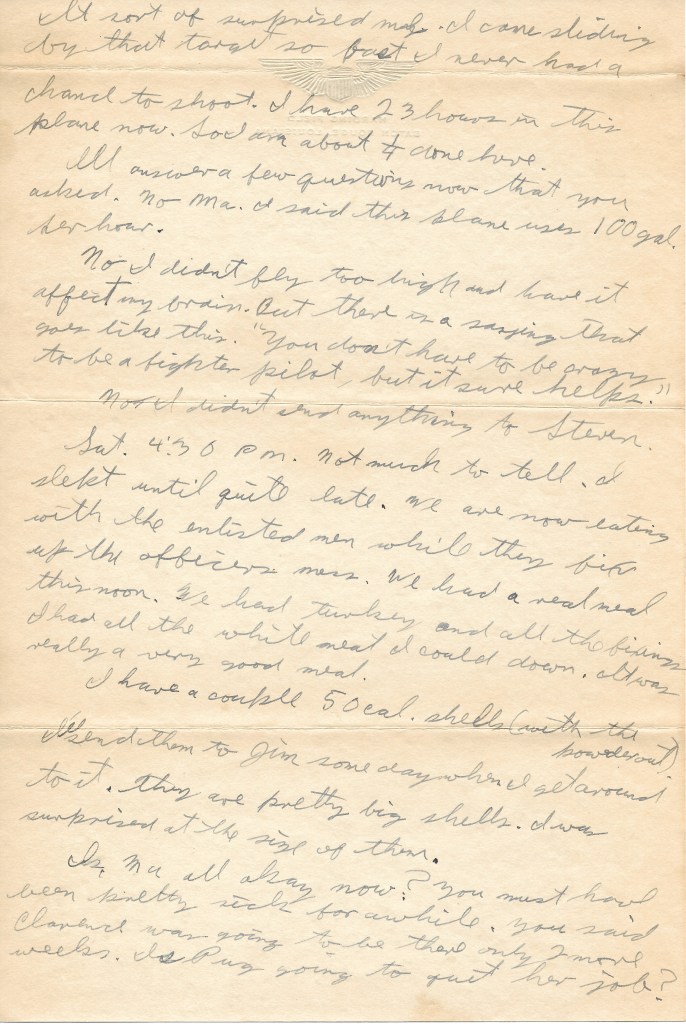 It sort of surprised me. I came sliding
by that target so fast I never had a
chance to shoot. I have 23 hours in this
plane now. So I am about ¼ done here.
I'll answer a few questions now that you
asked. No Ma. I said this plane uses 100 gal.
per hour.
No I didn't fly too high and have it
affect my brain. But there is a saying that
goes like this. "You don't have to be crazy
to be a fighter pilot, but it sure helps."
No I didn't send anything to Steven.
Sat. 4:30 P.M. Not much to tell. I
slept until quite late. We are now eating
with the enlisted men while they fix
up the officers mess. We had a real meal
this noon. We had turkey and all the fixings
I had all the white meat I could down. It was
really a very good meal.
I have a couple 50 cal. shells (with the
powder out).
I'll send them to Jim some day when I get around
to it. They are pretty big shells. I was
surprised at the size of them.
Is Ma all okay now? You must have
been pretty sick for awhile. You said
Clarence was going to be there only 2 more
weeks. Is Pug going to quit her job?